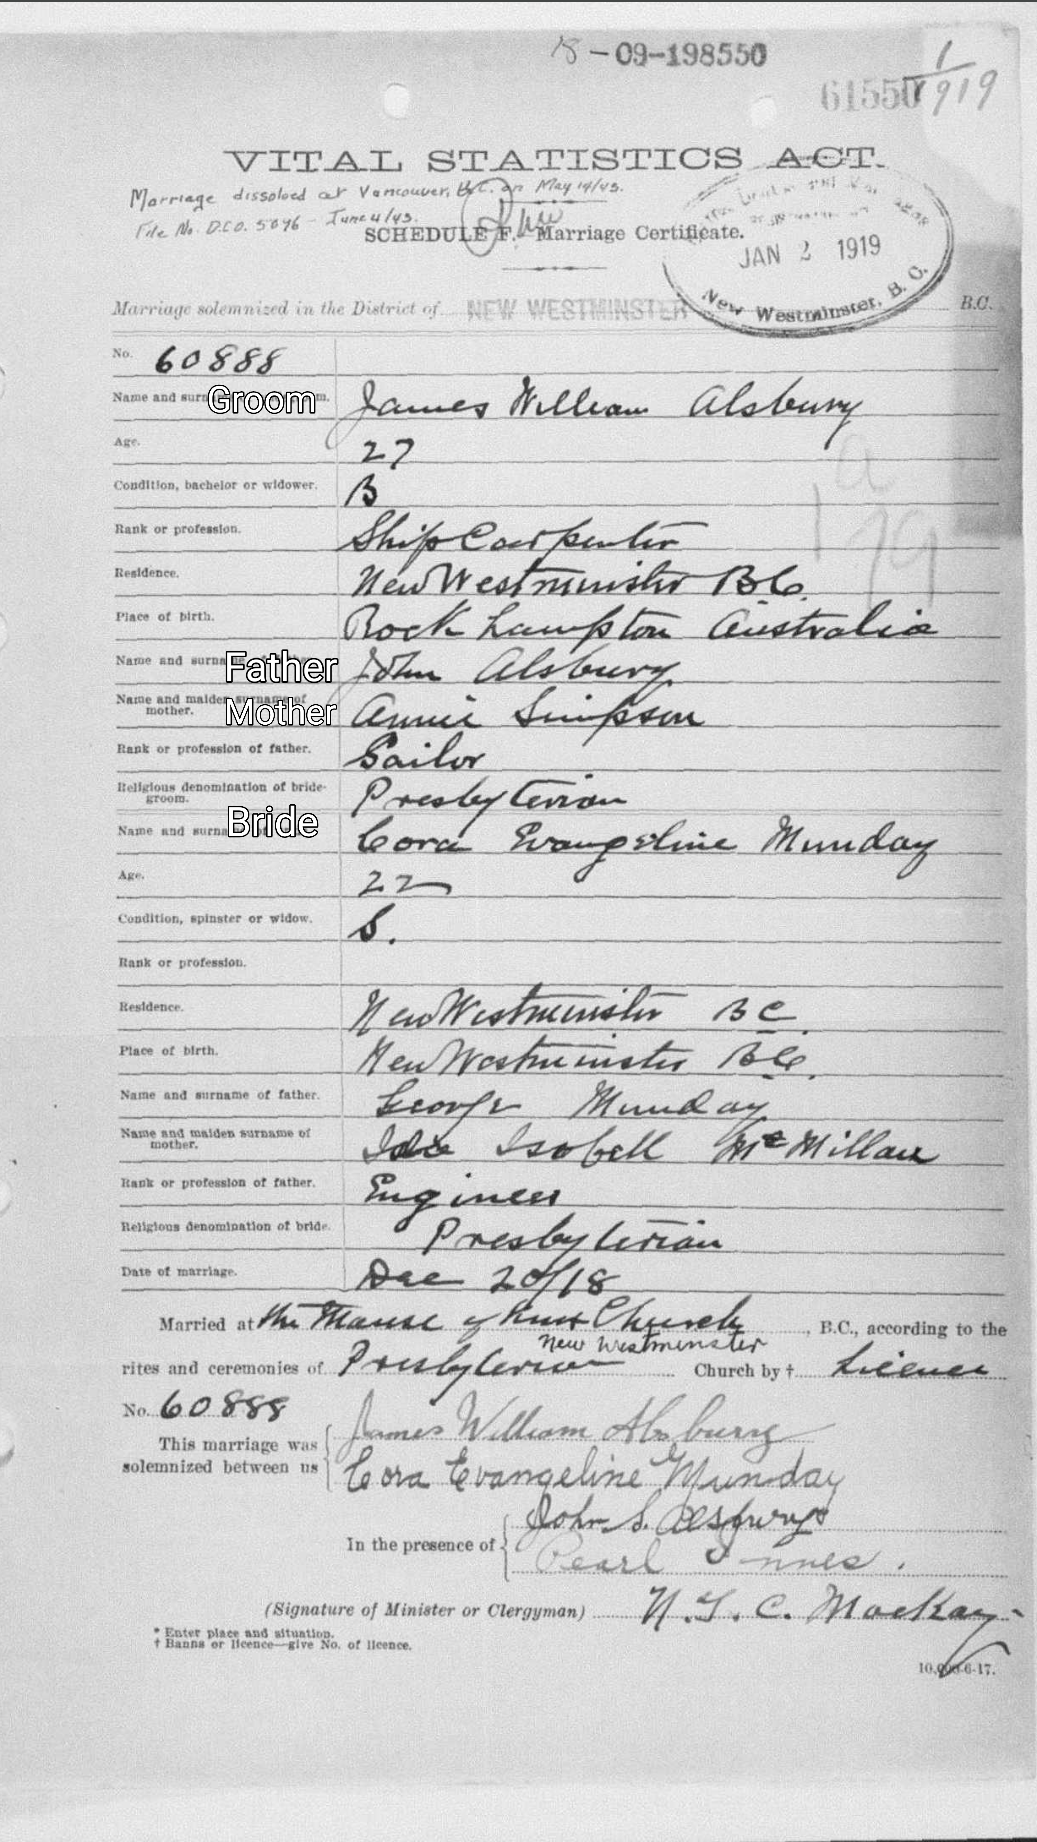 18-09-198550
61550
1/919
VITAL STATISTICS ACT.
Marriage dissolved at Vancouver, B.C. on May 14/43.
File No. D.C.O. 5096 - June 4/43.
SCHEDULE F. Marriage Certificate.
JAN 2 1919
New Westminster, B. C.
Marriage solemnized in the District of NEW WESTMINSTER B.C.
No. 60888
Name and Groom James William Alsbury
Age. 27
Condition, bachelor or widower. B
Rank or profession. Ship Carpenter
Residence. New Westminister B.C.
Place of birth. Rock Lampton Australia
Name and Father John Alsbury
Name and maiden surname of mother. Mother Annie Simpson
Rank or profession of father. Sailor
Religious denomination of bride-groom. Presbyterian
Name and Bride Cora Evangeline Munday
Age. 22
Condition, spinster or widow. S.
Rank or profession.
Residence. New Westminister B C.
Place of birth. New Westminister B.C.
Name and surname of father. George Munday
Name and maiden surname of mother. Ida Isobell McMillan
Rank or profession of father. Engineer
Religious denomination of bride. Presbyterian
Date of marriage. Dec 20/18
Married at the Manse of Knox Church, B.C., according to the
New Westminster
rites and ceremonies of Presbyterian Church by † Licence
No. 60888
This marriage was solemnized between us { James William Alsbury
Cora Evangeline Munday
In the presence of { John S. Alsbury
Pearl Innes.
(Signature of Minister or Clergyman) MacKay
* Enter place and situation.
† Banns or licence—give No. of licence.
10,000-6-17.